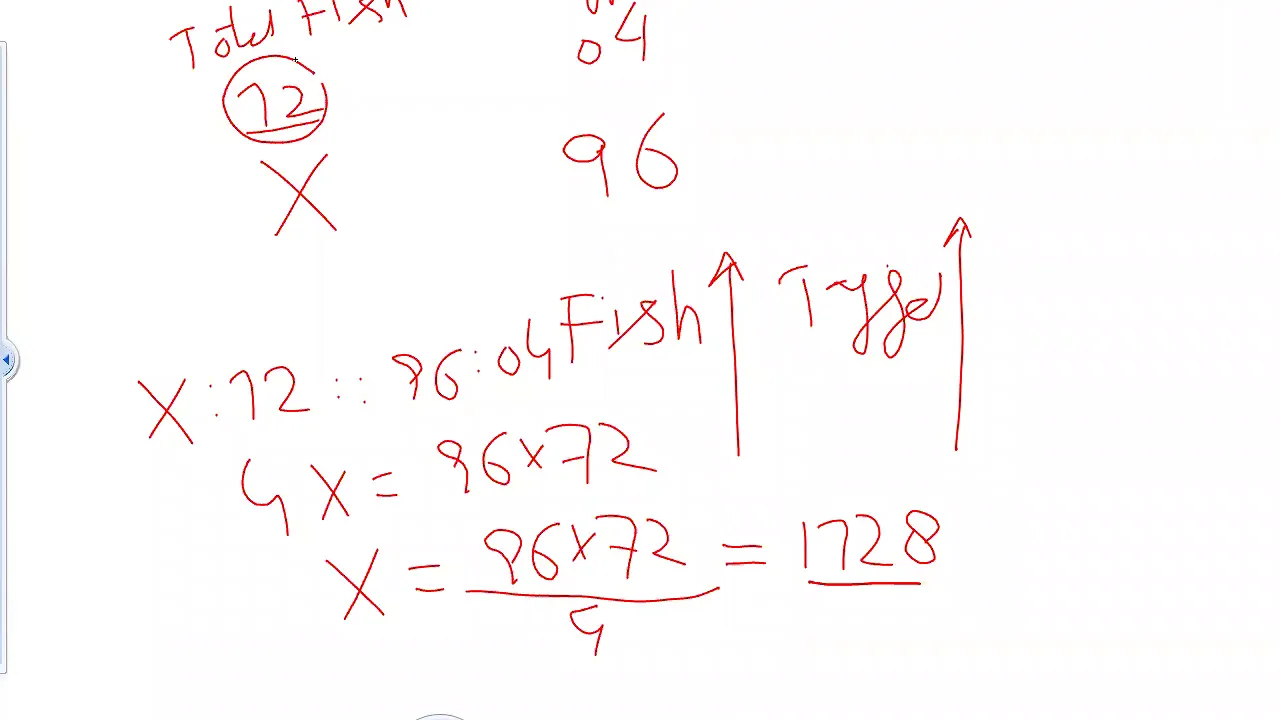 Total Fish
04
72
96
X
Fish Tagged
X : 72 :: 96 : 04
4 X = 96 x 72
X = 96 x 72 = 1728
4